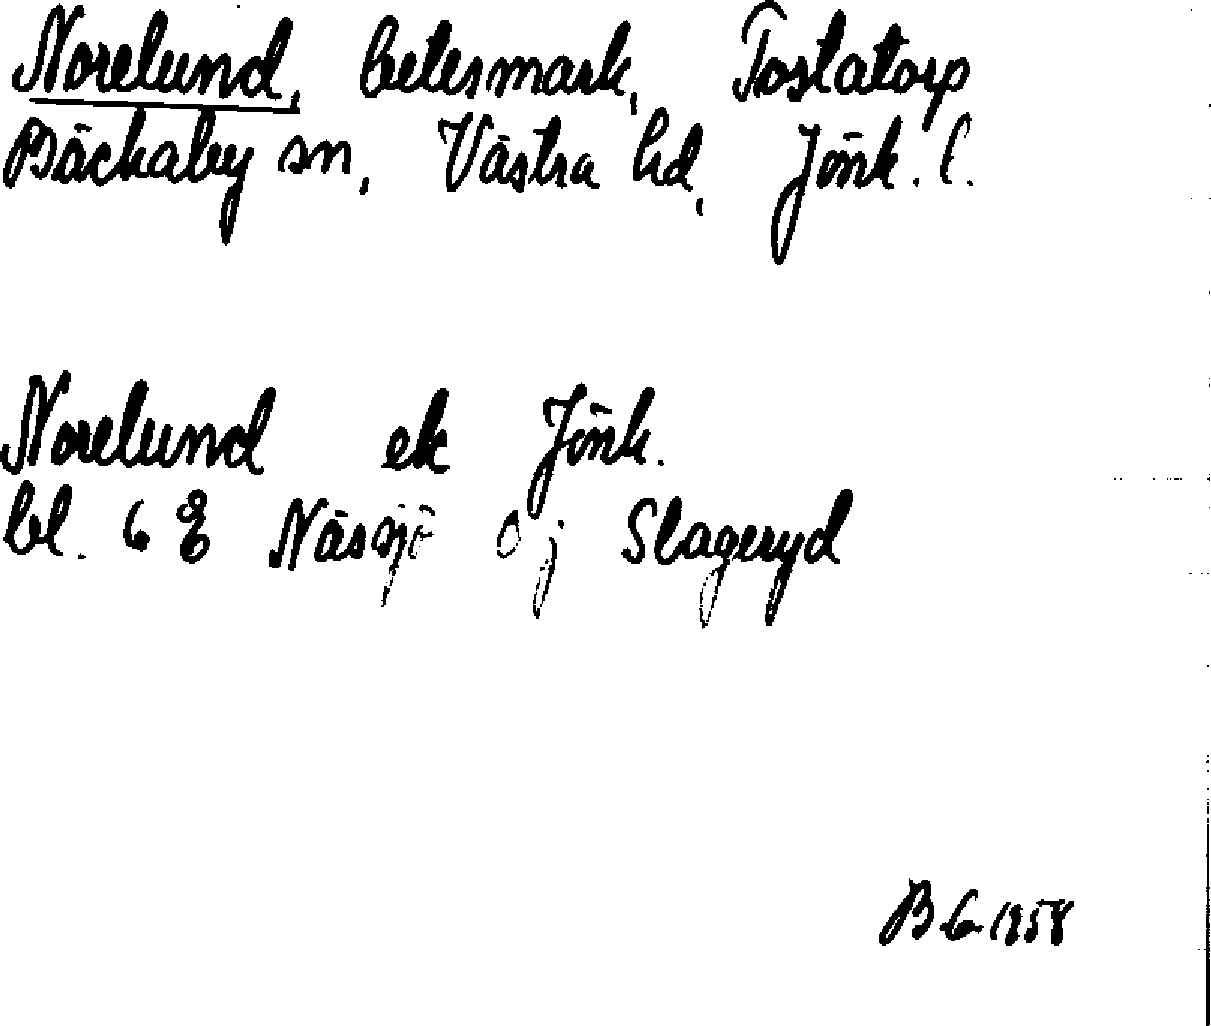 Norelund, betesmark, Tostatorp
Bäckaby sn, Västra hd, Jönk. l.
Norelund ek Jönk.
bl. 6 8 Nässjö Öj Slageryd
BG 1958